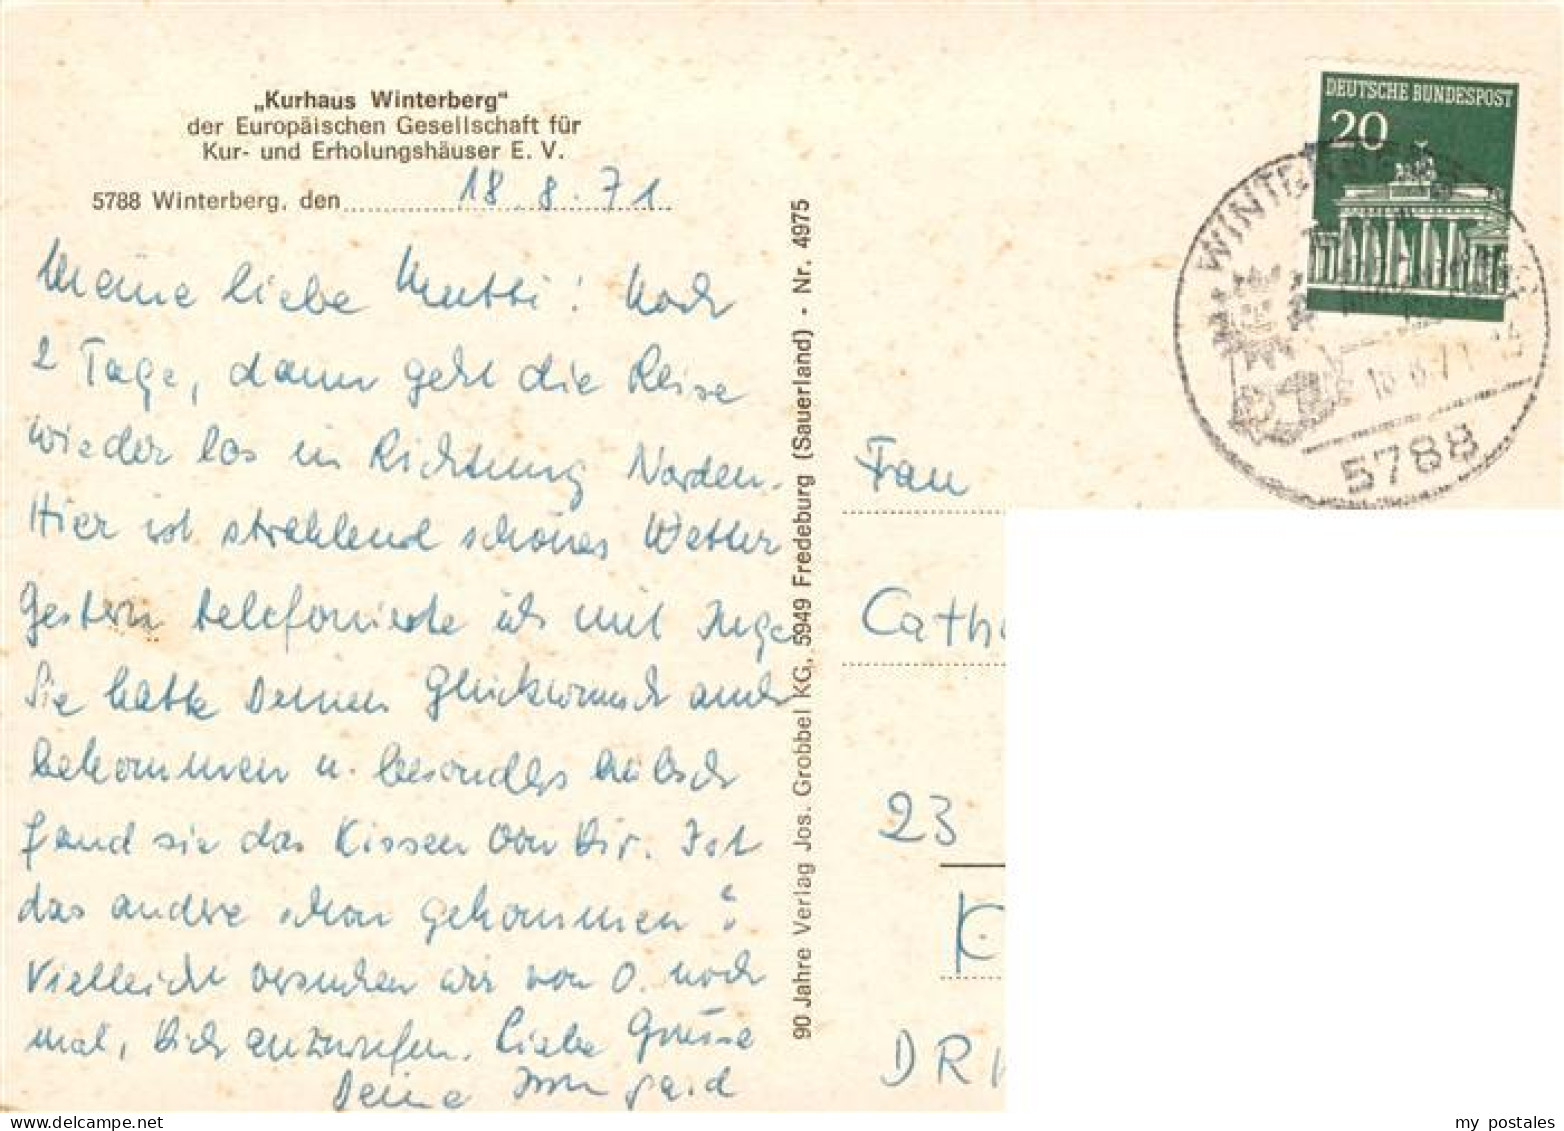 „Kurhaus Winterberg“
der Europäischen Gesellschaft für
Kur- und Erholungshäuser E. V.
5788 Winterberg, den 18. 8. 71
Meine liebe Mutti! Noch
2 Tage, dann geht die Reise
wieder los in Richtung Norden.
Hier ist strahlend schönes Wetter
Gestern telefonierte ich mit Inge
Sie hatte Deinen Glückwunsch auch
bekommen u. besonders hübsch
fand sie das Kissen von Dir. Ist
das andere schon gekommen?
Vielleicht versuchen wir von O. noch
mal, Dich anzurufen. Liebe Grüsse
Deine Irmgard
90 Jahre Verlag Jos. Grobbel KG, 5949 Fredeburg (Sauerland) · Nr. 4975
DEUTSCHE BUNDESPOST
20
WINTERBERG
18.8.71
5788
Frau
Cath
23
K
DR
my postales